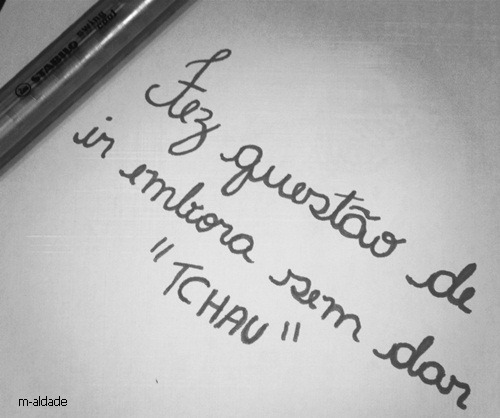 STABILO swing cool
Fez questão de
ir embora sem dar
"TCHAU"
m-aldade